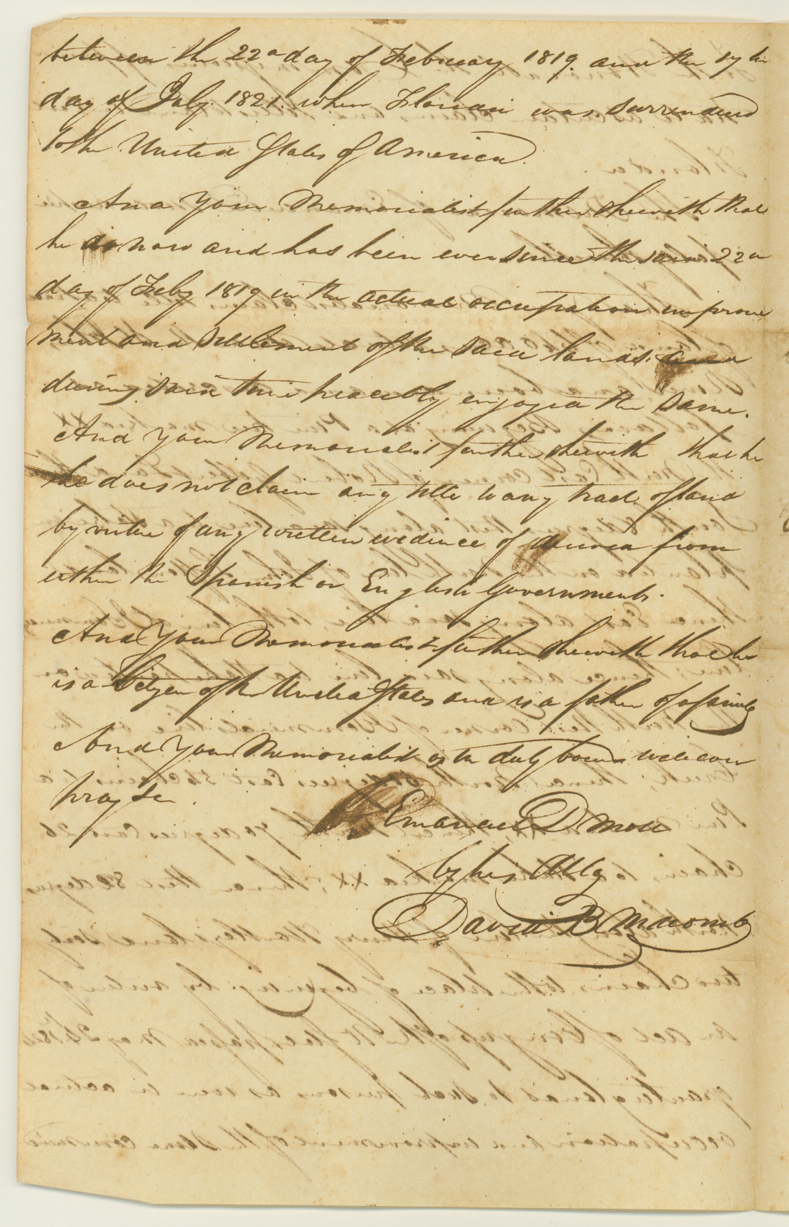 between the 22d day of February 1819 and the 17th
day of July 1821 when Floridas was surrendered
to the United States of America.
And your Memorialist further sheweth that
he is now and has been ever since the said 22d
day of Feby 1819 in the actual occupation improve
ment and settlement of the said lands and
during said time peaceably enjoyed the same.
And your Memorialist further sheweth that he
he does not claim any title to any tract of land
by virtue of any written evidence of derived from
either the Spanish or English Governments.
And your Memorialist further sheweth that he
is a Citizen of the United States and is a father of a family
And your Memorialist as in duty bound will ever
pray &c.
Emanuel D
by his Atty
David B Macomb